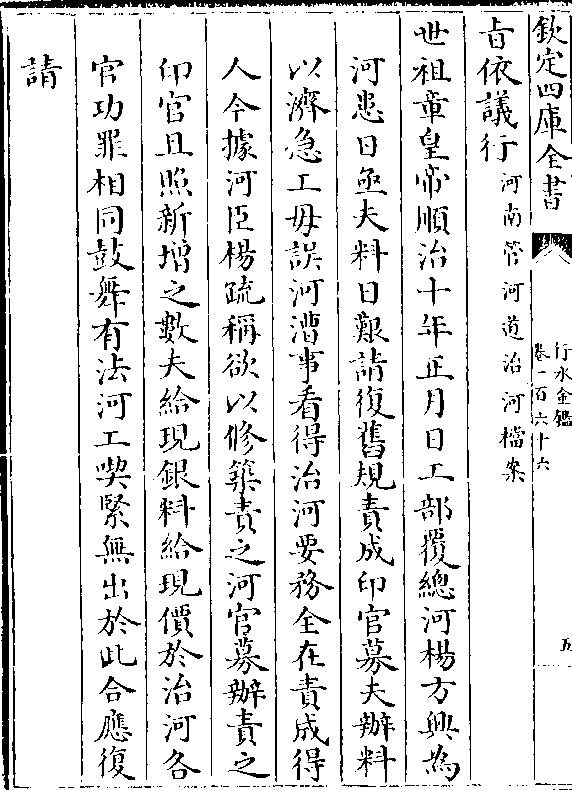 欽定四庫全書
行水金鑑
卷一百六十六
五
旨依議行河南管河道治河檔案
世祖章皇帝順治十年正月日工部覆總河楊方興為
河患日亟夫料日艱請復舊規責成印官募夫辦料
以濟急工毋誤河漕事看得治河要務全在責成得
人今據河臣楊疏稱欲以修築責之河官募辦責之
印官且照新增之數夫給現銀料給現價於治河各
官功罪相同鼓舞有法河工喫緊無出於此合應復
請